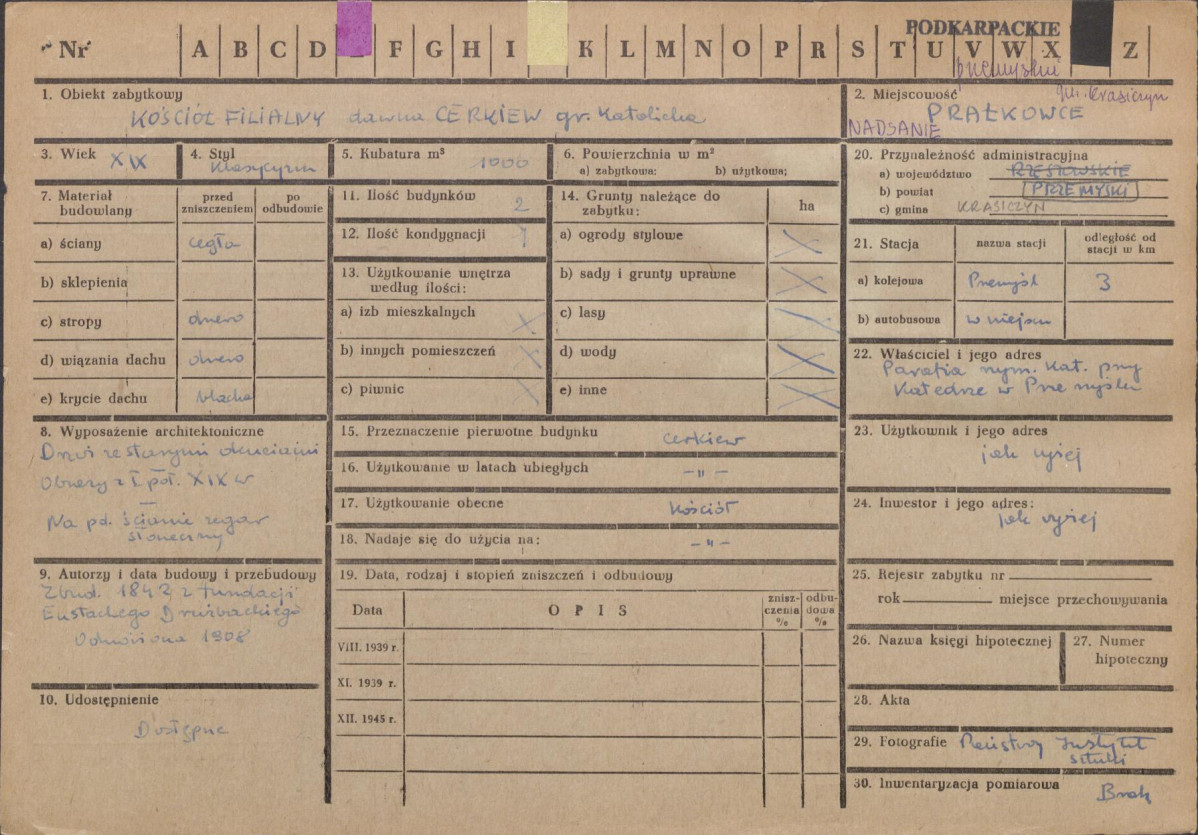 Nr A B C D F G H I K L M N O P R S T U V W X Z
PODKARPACKIE
przemyski
gm. Krasiczyn
1. Obiekt zabytkowy
KOŚCIÓŁ FILIALNY dawna CERKIEW gr. Katolicka
2. Miejscowość
PRAŁKOWCE
NADSANIE
3. Wiek XIX
4. Styl
Klasycyzm
5. Kubatura m³ 1000
6. Powierzchnia w m²
a) zabytkowa: b) użytkowa;
7. Materiał budowlany
przed zniszczeniem
po odbudowie
a) ściany cegła
b) sklepienia
c) stropy drewno
d) wiązania dachu drewno
e) krycie dachu blacha
8. Wyposażenie architektoniczne
Drzwi ze starymi okuciami
Obrazy z I poł. XIX w
—
Na pd. ścianie zegar
słoneczny
9. Autorzy i data budowy i przebudowy
Zbud. 1842 z fundacji
Eustachego Drużbackiego
Odnowiona 1908
10. Udostępnienie
Dostępne
11. Ilość budynków 2
12. Ilość kondygnacji 1
13. Użytkowanie wnętrza
według ilości:
a) izb mieszkalnych
b) innych pomieszczeń
c) piwnic
14. Grunty należące do
zabytku:
ha
a) ogrody stylowe
b) sady i grunty uprawne
c) lasy
d) wody
e) inne
15. Przeznaczenie pierwotne budynku cerkiew
16. Użytkowanie w latach ubiegłych – „ –
17. Użytkowanie obecne Kościół
18. Nadaje się do użycia na: – „ –
19. Data, rodzaj i stopień zniszczeń i odbudowy
Data
OPIS
znisz-
czenia
%
odbu-
dowa
%
VIII. 1939 r.
XI. 1939 r.
XII. 1945 r.
20. Przynależność administracyjna
a) województwo RZESZOWSKIE
b) powiat PRZEMYSKI
c) gmina KRASICZYN
21. Stacja
nazwa stacji
odległość od
stacji w km
a) kolejowa Przemyśl 3
b) autobusowa w miejscu
22. Właściciel i jego adres
Parafia rzym. Kat. przy
Katedrze w Przemyślu
23. Użytkownik i jego adres
jak wyżej
24. Inwestor i jego adres:
jak wyżej
25. Rejestr zabytku nr
rok miejsce przechowywania
26. Nazwa księgi hipotecznej
27. Numer
hipoteczny
28. Akta
29. Fotografie Państwowy Instytut
sztuki
30. Inwentaryzacja pomiarowa
Brak